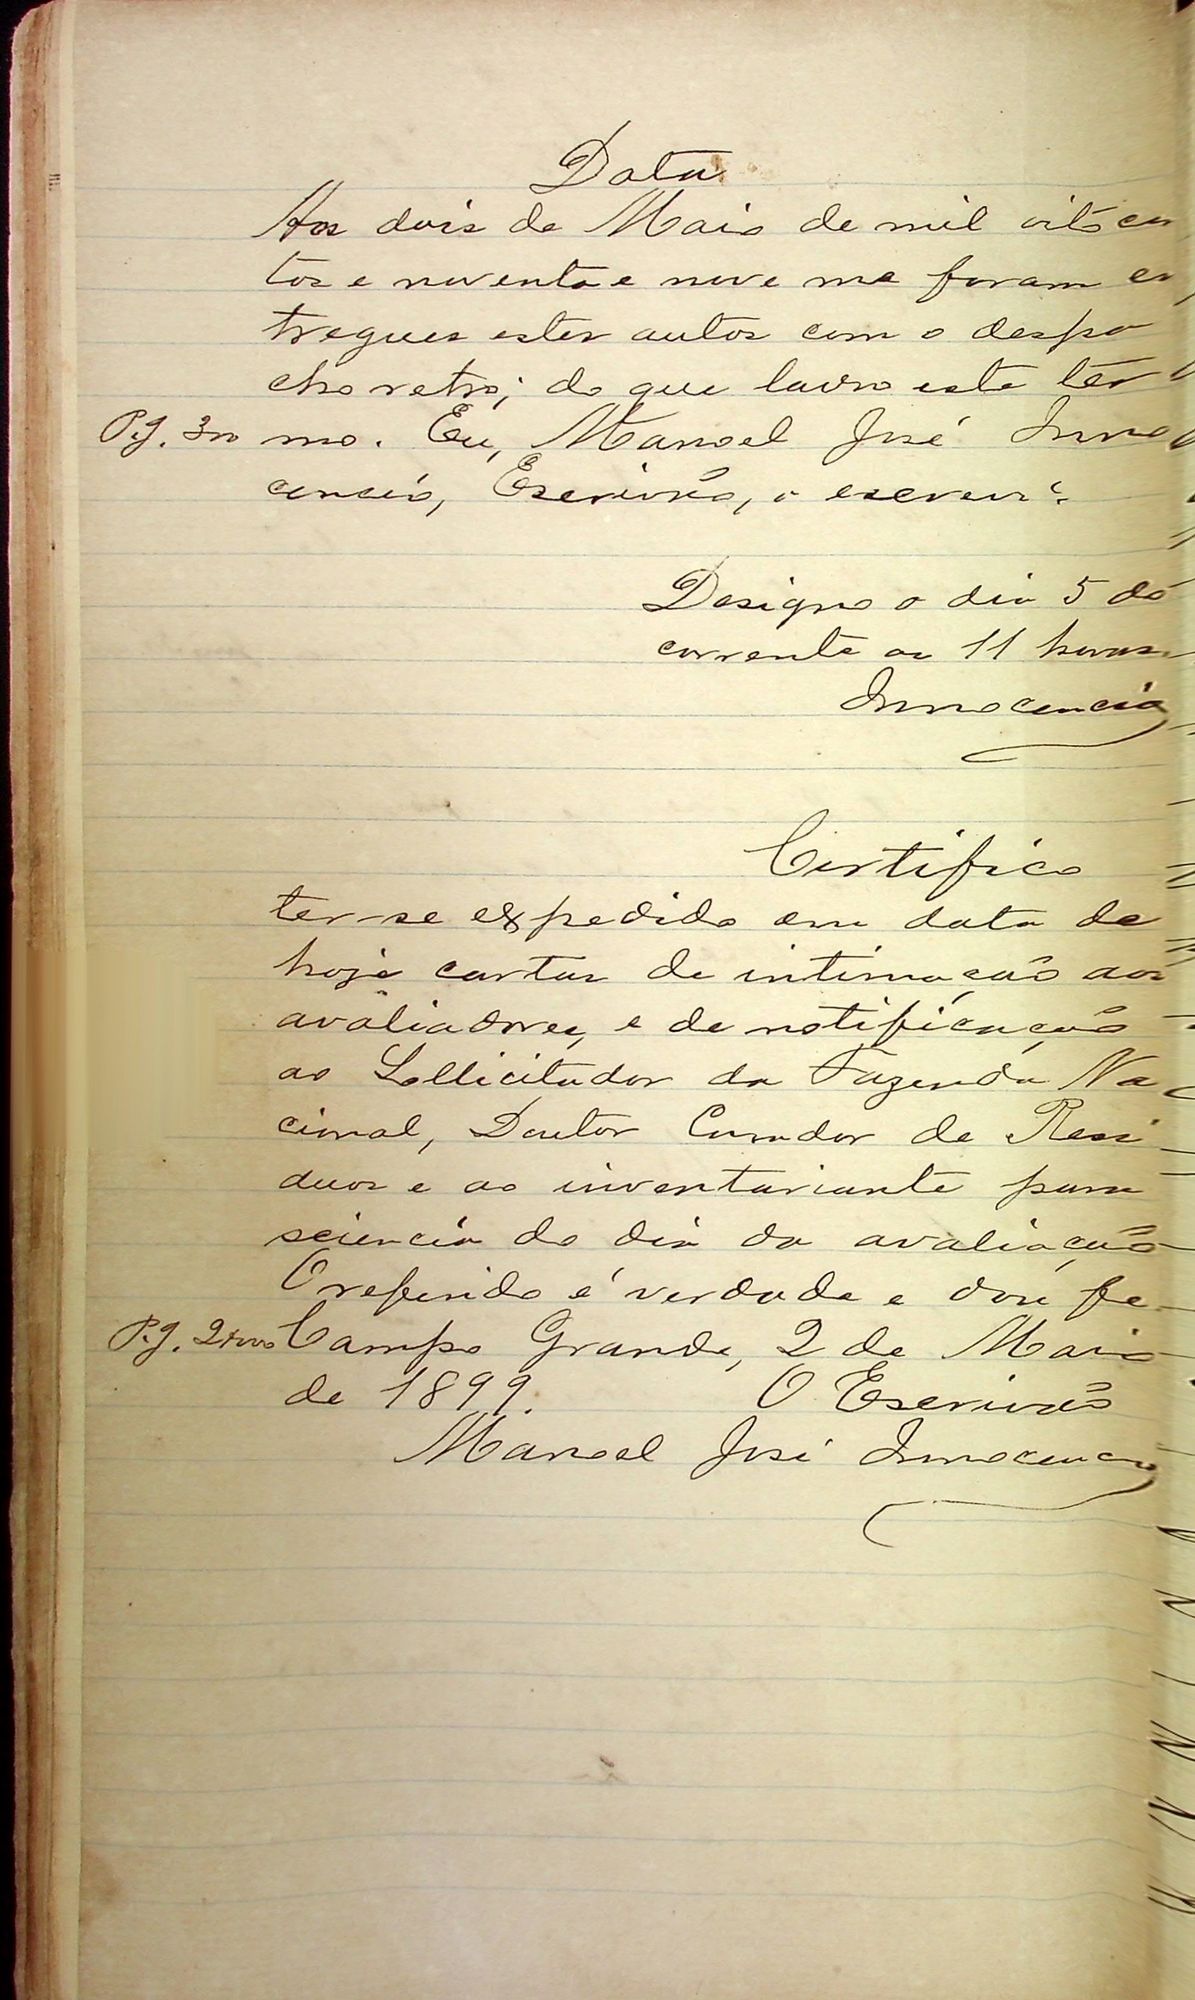 Data
Aos dois de Maio de mil oitocen
tos e noventa e nove me foram en
tregues estes autos com o despa
cho retro; do que lavro este ter
Pg. 300 mo. Eu, Manoel José Inno
cencio, Escrivão, o escrevi.
Designo o dia 5 do
corrente as 11 horas.
Innocencio
Certifico
ter-se expedido em data de
hoje cartas de intimação aos
avaliadores, e de notificação
ao Sollicitador da Fazenda Na
cional, Doutor Curador de Resi
duos e ao inventariante para
sciencia do dia da avaliação
O referido é verdade e dou fe
Pg. Campo Grande, 2 de Maio
de 1899. O Escrivão
Manoel José Innocencio